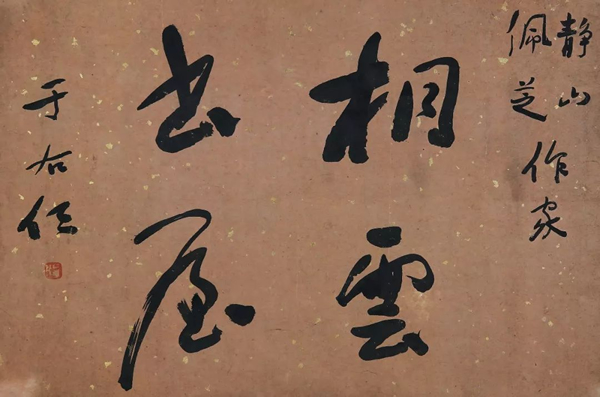 静山
佩芝
作家
相雲
書屋
于右任